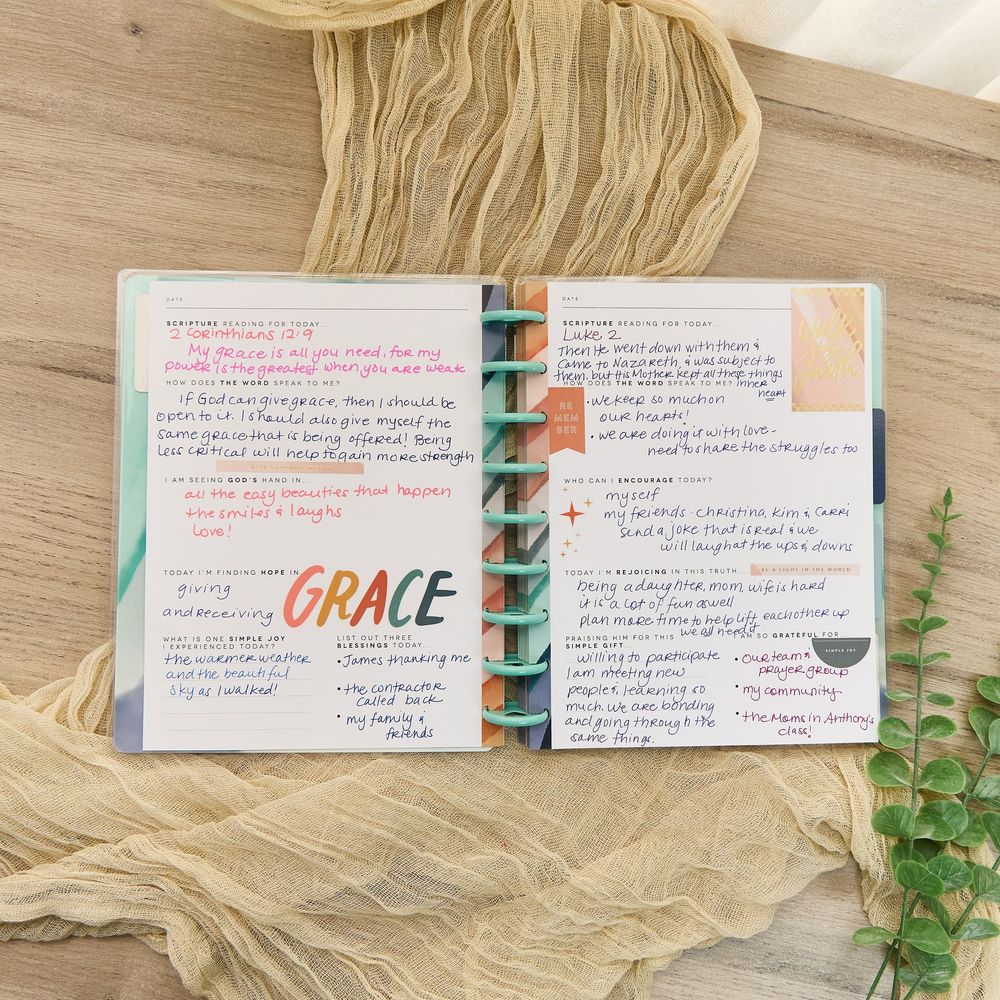 DATE:
SCRIPTURE READING FOR TODAY...
2 Corinthians 12:9
My grace is all you need, for my
power is the greatest when you are weak
HOW DOES THE WORD SPEAK TO ME?
If God can give grace, then I should be
open to it. I should also give myself the
same grace that is being offered! Being
less critical will help to gain more strength
I AM SEEING GOD'S HAND IN...
all the easy beauties that happen
the smiles & laughs
love!
TODAY I'M FINDING HOPE IN
giving
and receiving
GRACE
WHAT IS ONE SIMPLE JOY
I EXPERIENCED TODAY?
the warmer weather
and the beautiful
sky as I walked!
LIST OUT THREE
BLESSINGS TODAY...
• James thanking me
• the contractor
called back
• my family &
friends
DATE:
SCRIPTURE READING FOR TODAY...
Luke 2
Then He went down with them &
came to Nazareth, & was subject to
them, but His Mother kept all these things
inner
heart
HOW DOES THE WORD SPEAK TO ME?
RE
MEM
BER
• we keep so much on
our hearts!
• we are doing it with love -
need to share the struggles too
WHO CAN I ENCOURAGE TODAY?
myself
my friends - Christina, Kim & Carri
send a joke that is real & we
will laugh at the ups & downs
TODAY I'M REJOICING IN THIS TRUTH...
BE A LIGHT IN THE WORLD
being a daughter, mom, wife is hard
it is a lot of fun as well
plan more time to help lift each other up
we all need it
PRAISING HIM FOR THIS
SIMPLE GIFT...
willing to participate
I am meeting new
people & learning so
much. we are bonding
and going through the
same things.
AM SO GRATEFUL FOR...
SIMPLE JOY
• our team &
prayer group
• my community
• the Moms in Anthony's
class!